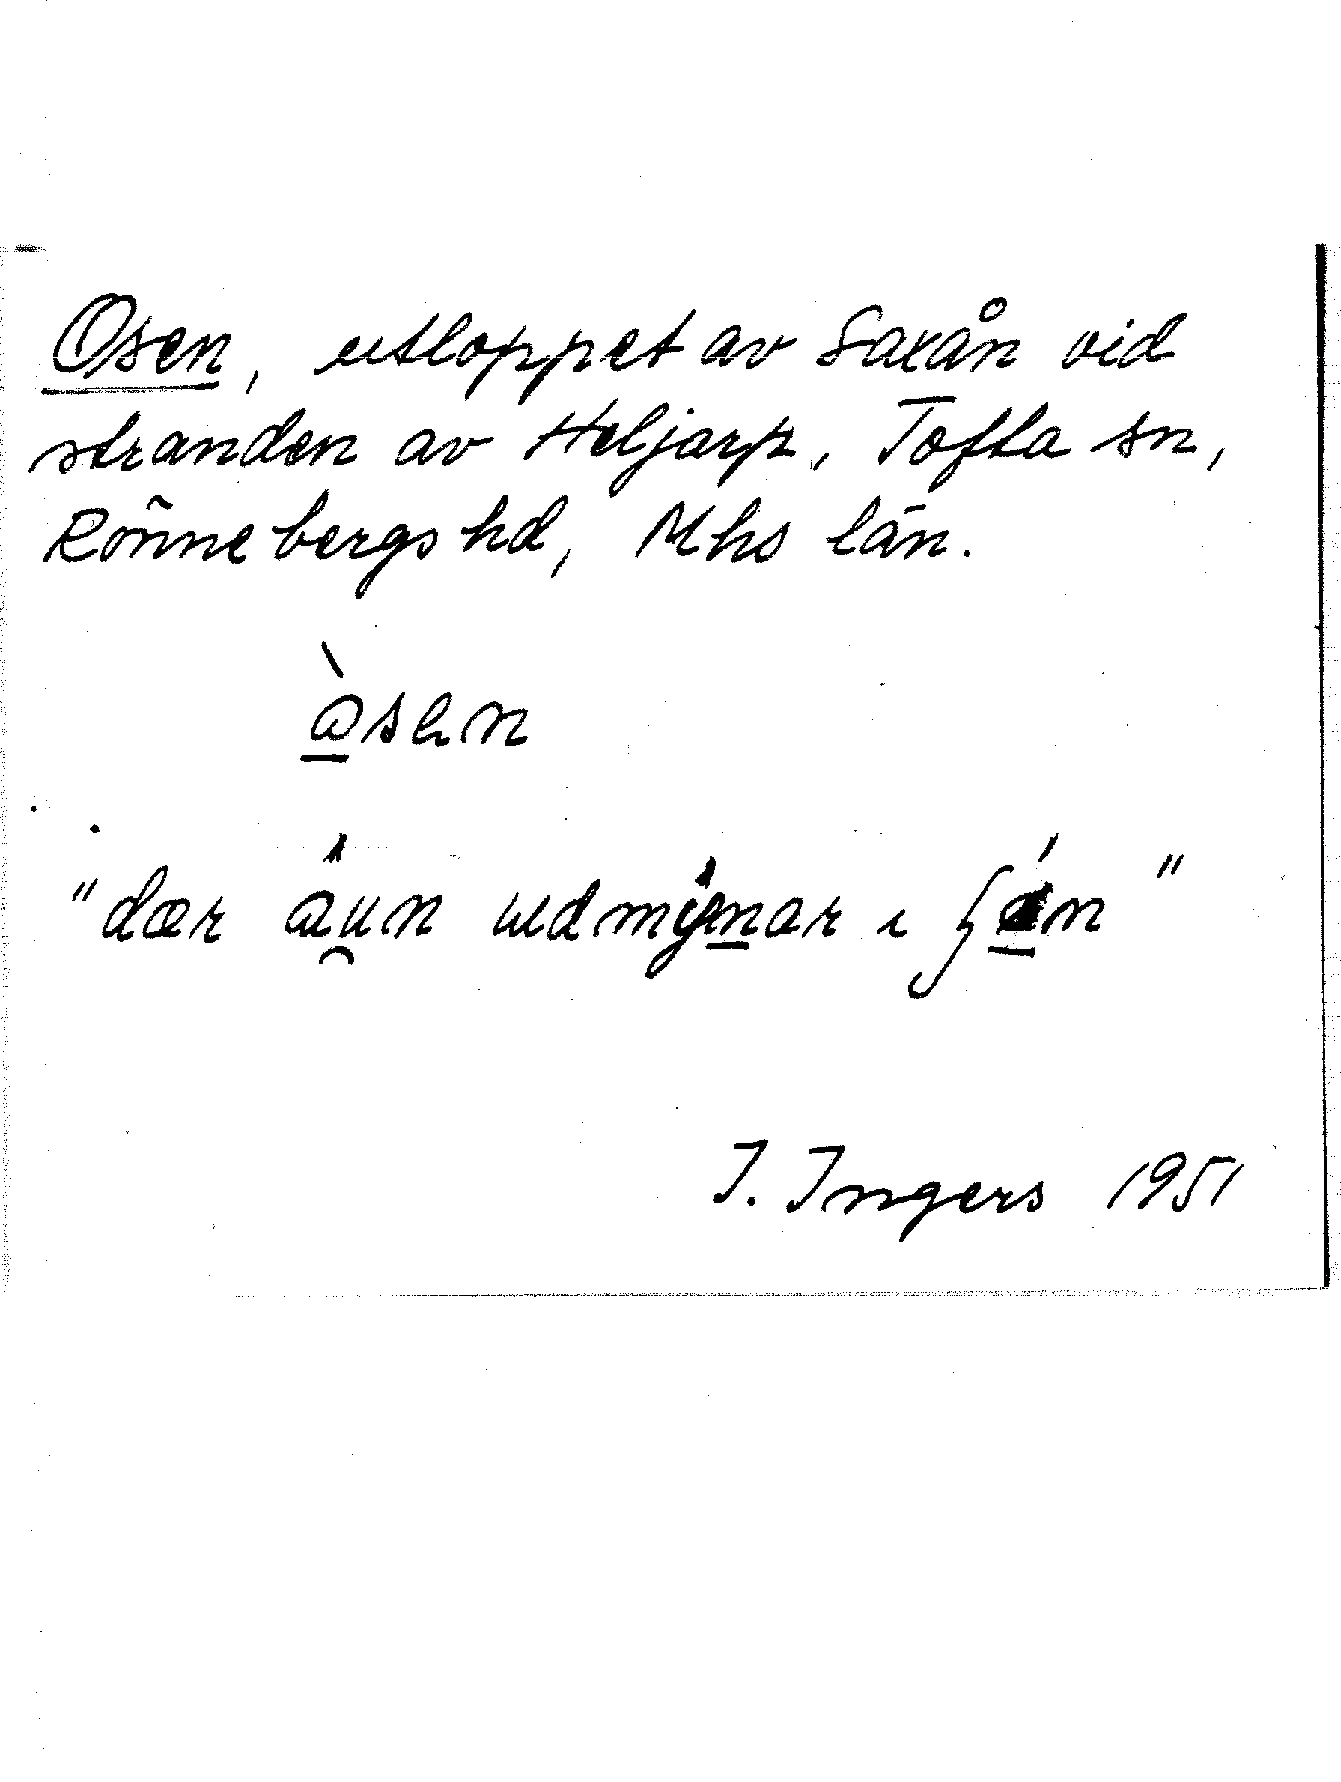 Osen, utloppet av Saxån vid
stranden av Heljarp, Tofta sn,
Rönnebergs hd, Mhs län.
òsen
"dær
I. Ingers 1951